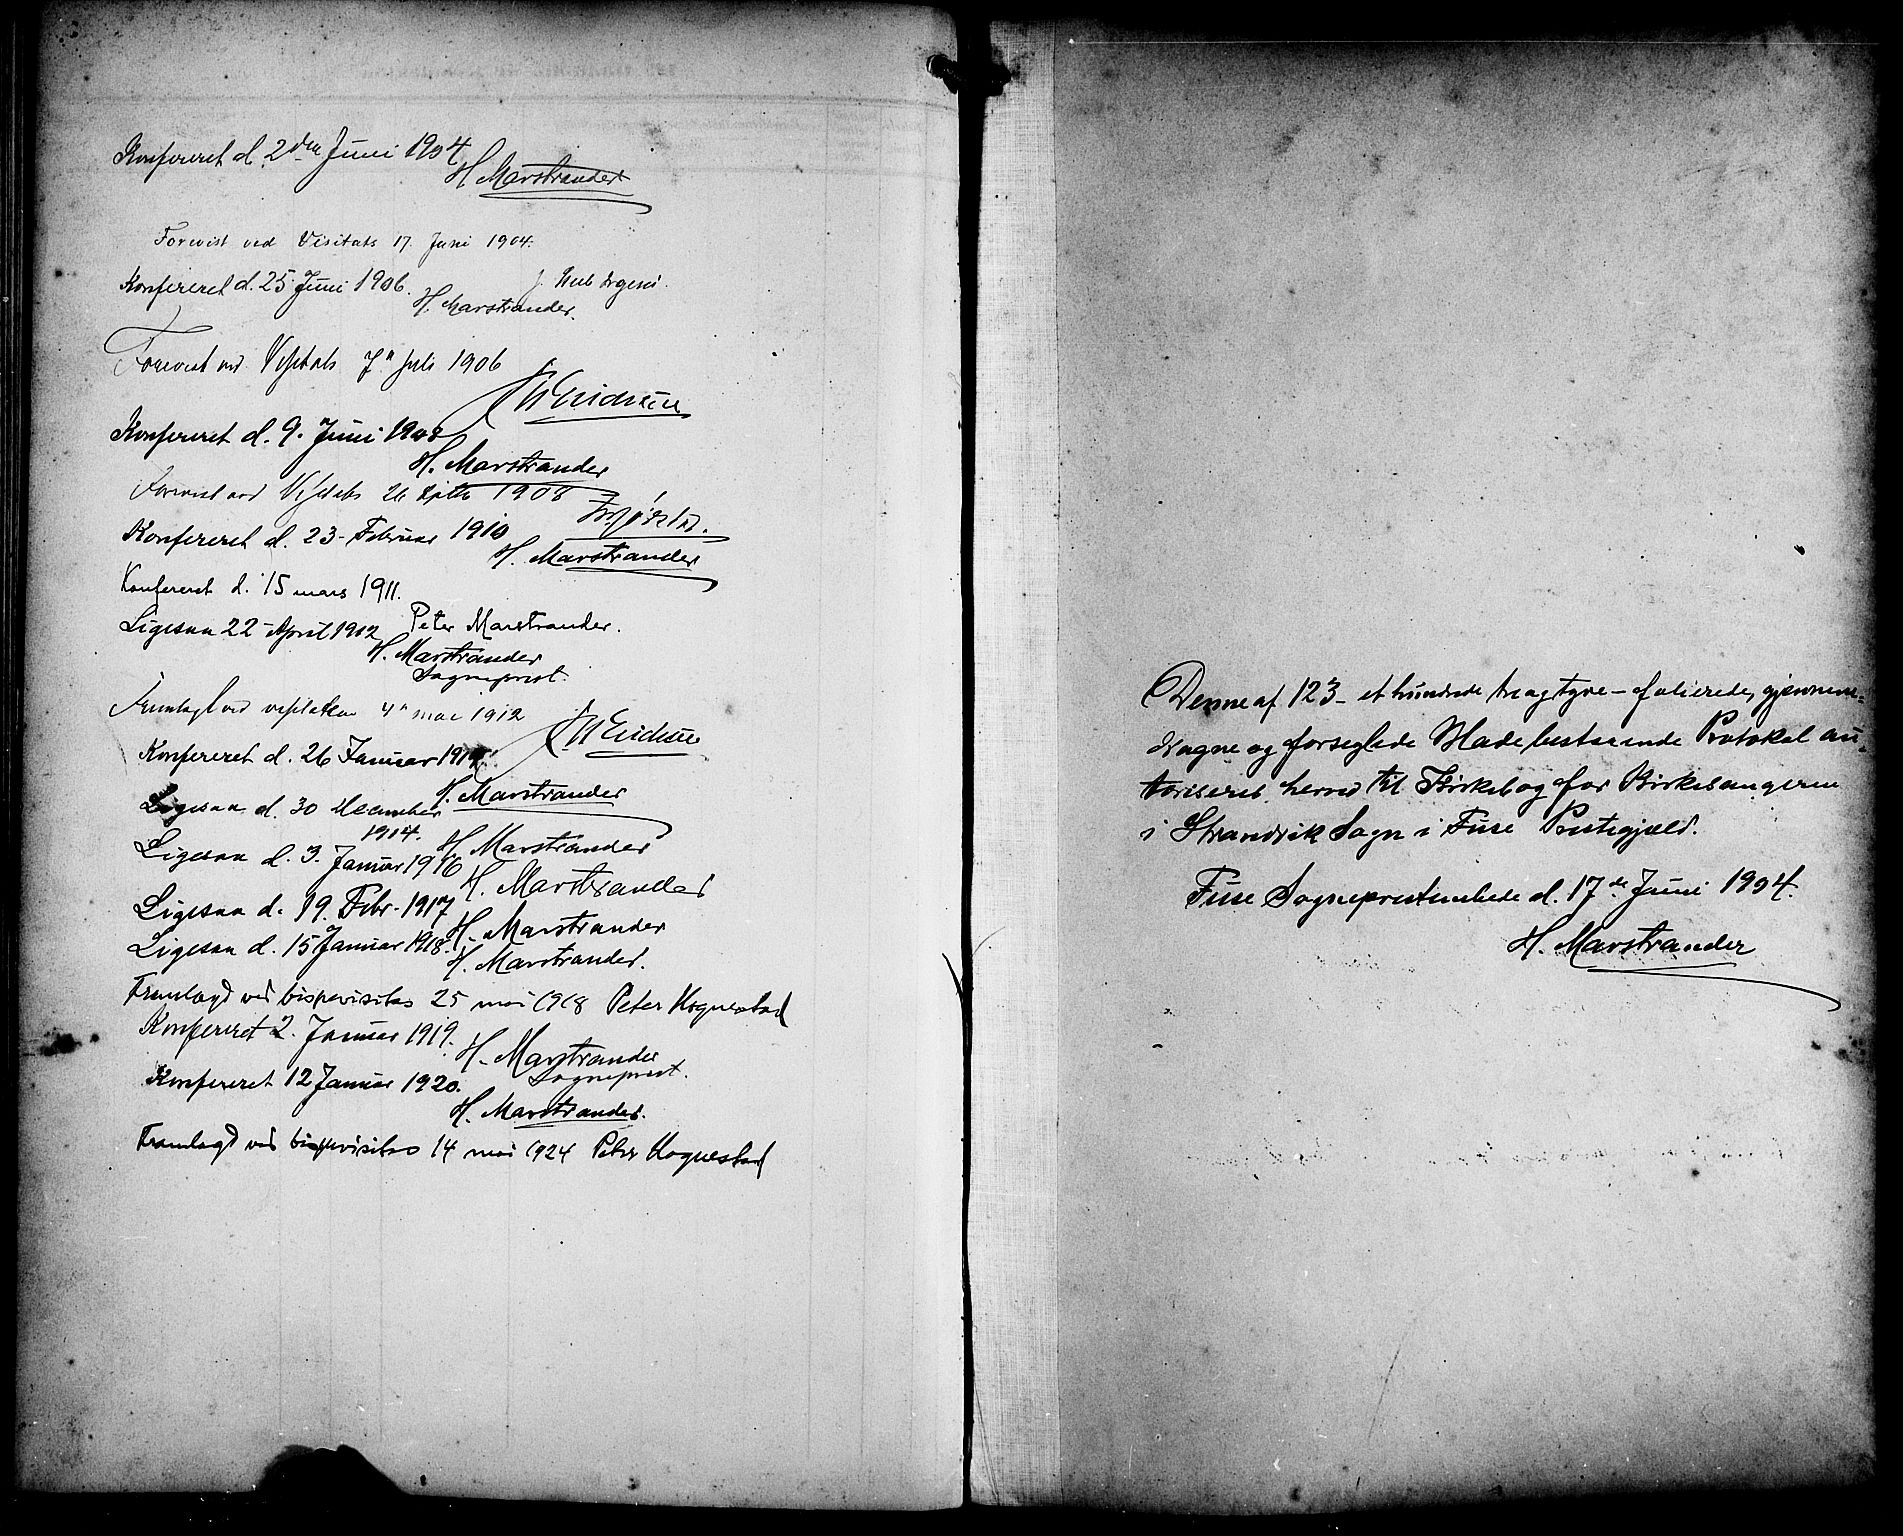 Konfereret d. 2den Juni 1904
H Marstrander
Forevist ved Visitats 17. Juni 1904.
Konfereret d. 25 Juni 1906.
H. Marstrander.
Forevist ved Visitats 7de juli 1906
Konfereret d. 9. Juni 1908
H. Marstrander
Forevist ved Visitats 26 1908
Konfereret d. 23 - Februar 1910
H. Marstrander
Konfereret d. 15 mars 1911.
Peter Marstrander.
Ligesaa 22 - April 1912
H. Marstrander
Sogneprest.
Fremlagt ved 4de mai 1912
J W Erichsen
Konfereret d. 26 Januar 1914
H. Marstrander
Ligesaa d. 30 December
1914.
H. Marstrander
Ligesaa d. 3. Januar 1916
H. Marstrander
Ligesaa d. 19. Febr. 1917
H. Marstrander
Ligesaa d. 15 Januar 1918.
H. Marstrander.
Framlagd ved bispevisitas 25 mai 1918 Peter Hognestad
Konfereret 2. Januar 1919.
H. Marstrander
Sogneprest.
Konfereret 12 Januar 1920.
H. Marstrander.
Framlagd ved bispevisitas 14 mai 1924 Peter Hognestad
Denne af 123 - et hundrede tre og tyve - folierede, gjennem-
dragne og forseglede Blade bestaaende Protokol au-
toriseres herved til Kirkebog for Kirkesangeren
i Strandvik Sogn i Fuse Prestegjæld.
Fuse Sogneprestembede d. 17de Juni 1904.
H. Marstrander